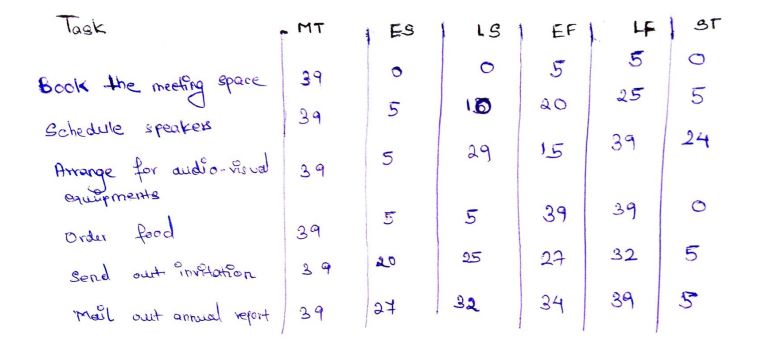 Task - MT | ES | LS | EF | LF | ST
Book the meeting space 39 0 0 5 5 0
Schedule speakers 39 5 10 20 25 5
Arrange for audio-visual 39 5 29 15 39 24
equipments
Order food 39 5 5 39 39 0
Send out invitation 39 20 25 27 32 5
Mail out annual report 39 27 32 34 39 5